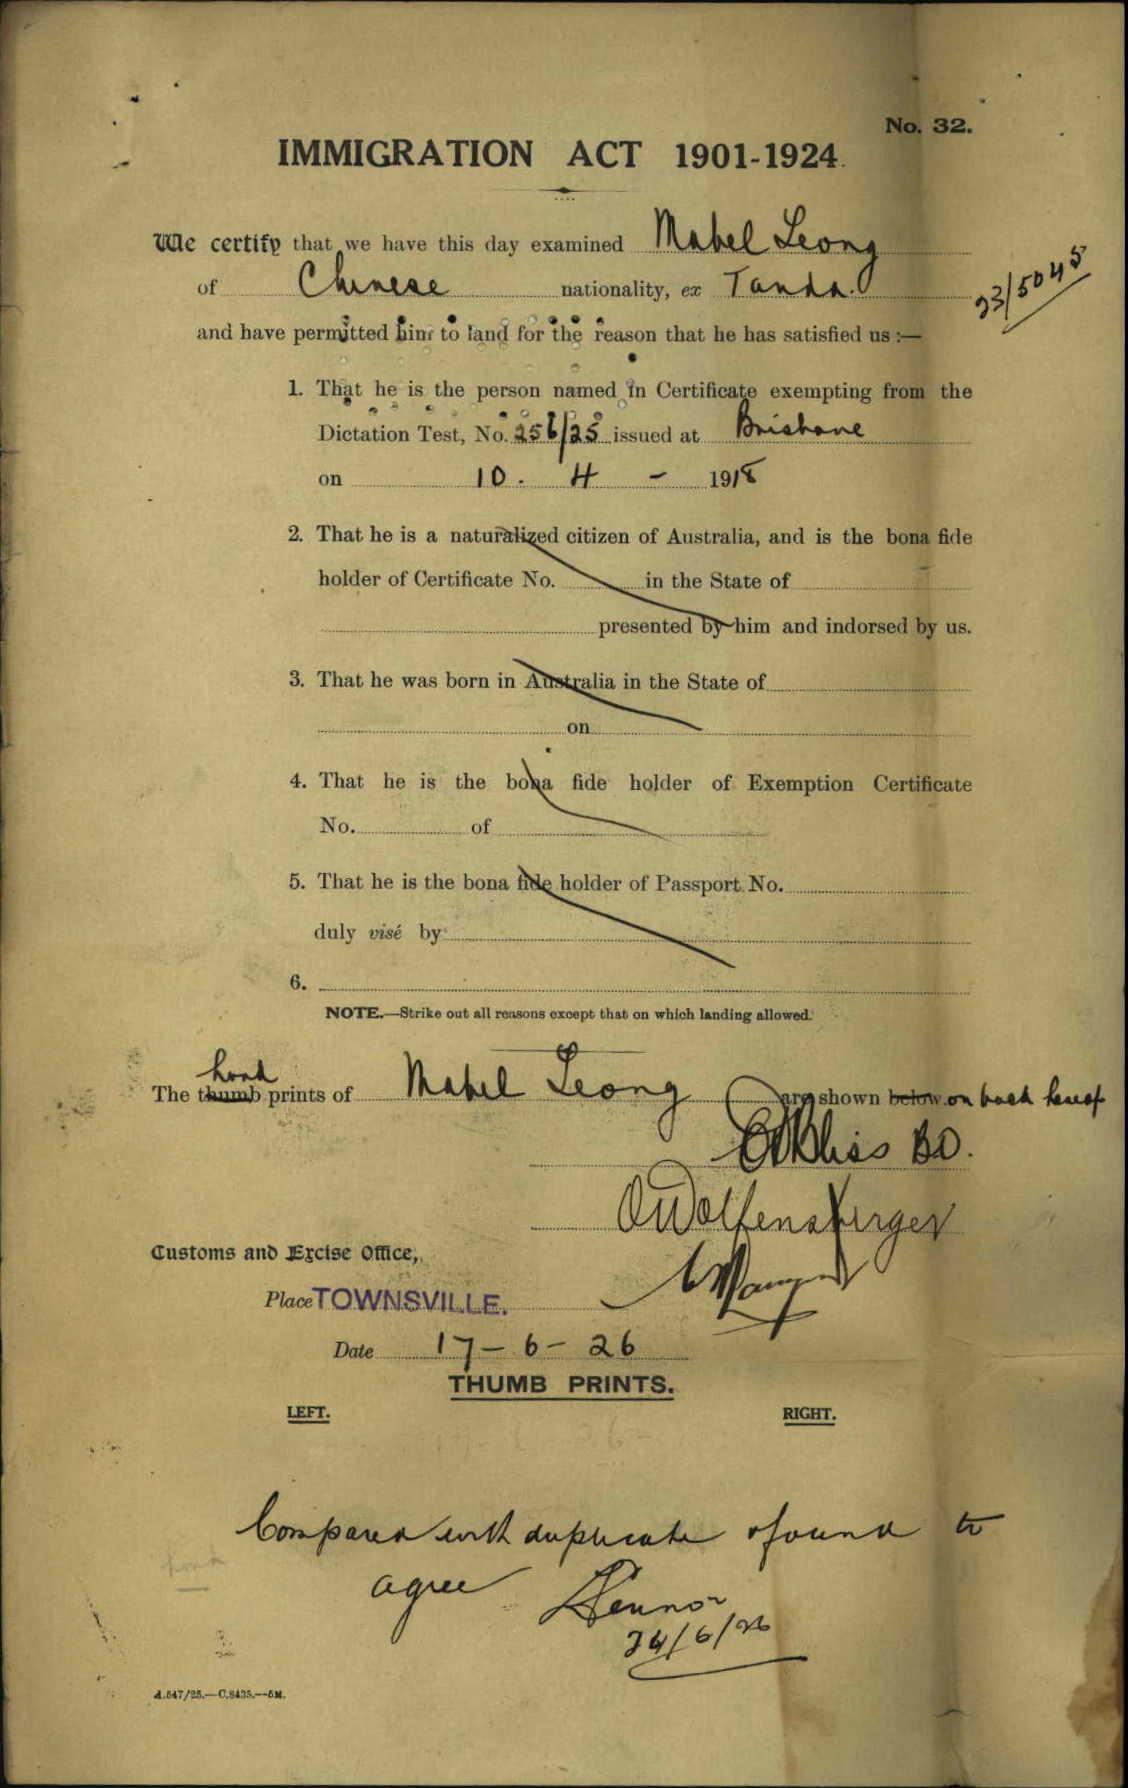 No. 32.
IMMIGRATION ACT 1901-1924.
We certify that we have this day examined Mabel Leong
of Chinese nationality, ex Tanda.
23/5045
and have permitted him to land for the reason that he has satisfied us :—
1. That he is the person named in Certificate exempting from the
Dictation Test, No. 256/25 issued at Brisbane
on 10. 4 - 1918
2. That he is a naturalized citizen of Australia, and is the bona fide
holder of Certificate No. in the State of
presented by him and indorsed by us.
3. That he was born in Australia in the State of
on
4. That he is the bona fide holder of Exemption Certificate
No. of
5. That he is the bona fide holder of Passport No.
duly visé by
6.
NOTE.—Strike out all reasons except that on which landing allowed.
hand
The thumb prints of Mabel Leong are shown below on back hereof
Bliss BO.
O Wolfensberger
Customs and Excise Office,
Place TOWNSVILLE.
Date 17-6-26
THUMB PRINTS.
LEFT. RIGHT.
Compared with duplicate & found to
agree
24/6/26
A.547/25.—C.8435.—5M.